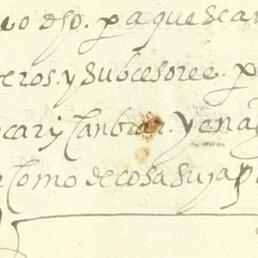 uo dho. pa que sean
eros. y subcesores. p
car y canbiar. y enag
como de cosa suya p